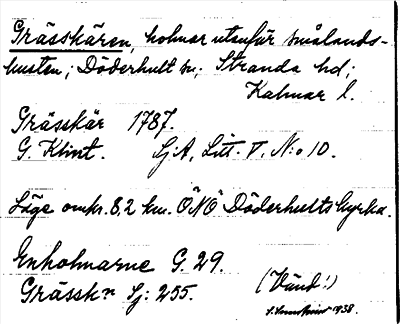 Grässkären, holmar utanför smålands-
kusten; Döderhult sn; Stranda hd;
Kalmar l.
Grässkär 1787.
G. Klint. SjA, Litt. V, N:o 10.
Läge omkr. 8,2 km. ÖNÖ Döderhults kyrka.
Enholmarne G. 29.
Grässkn Sj: 255. (Vänd!)
1938.